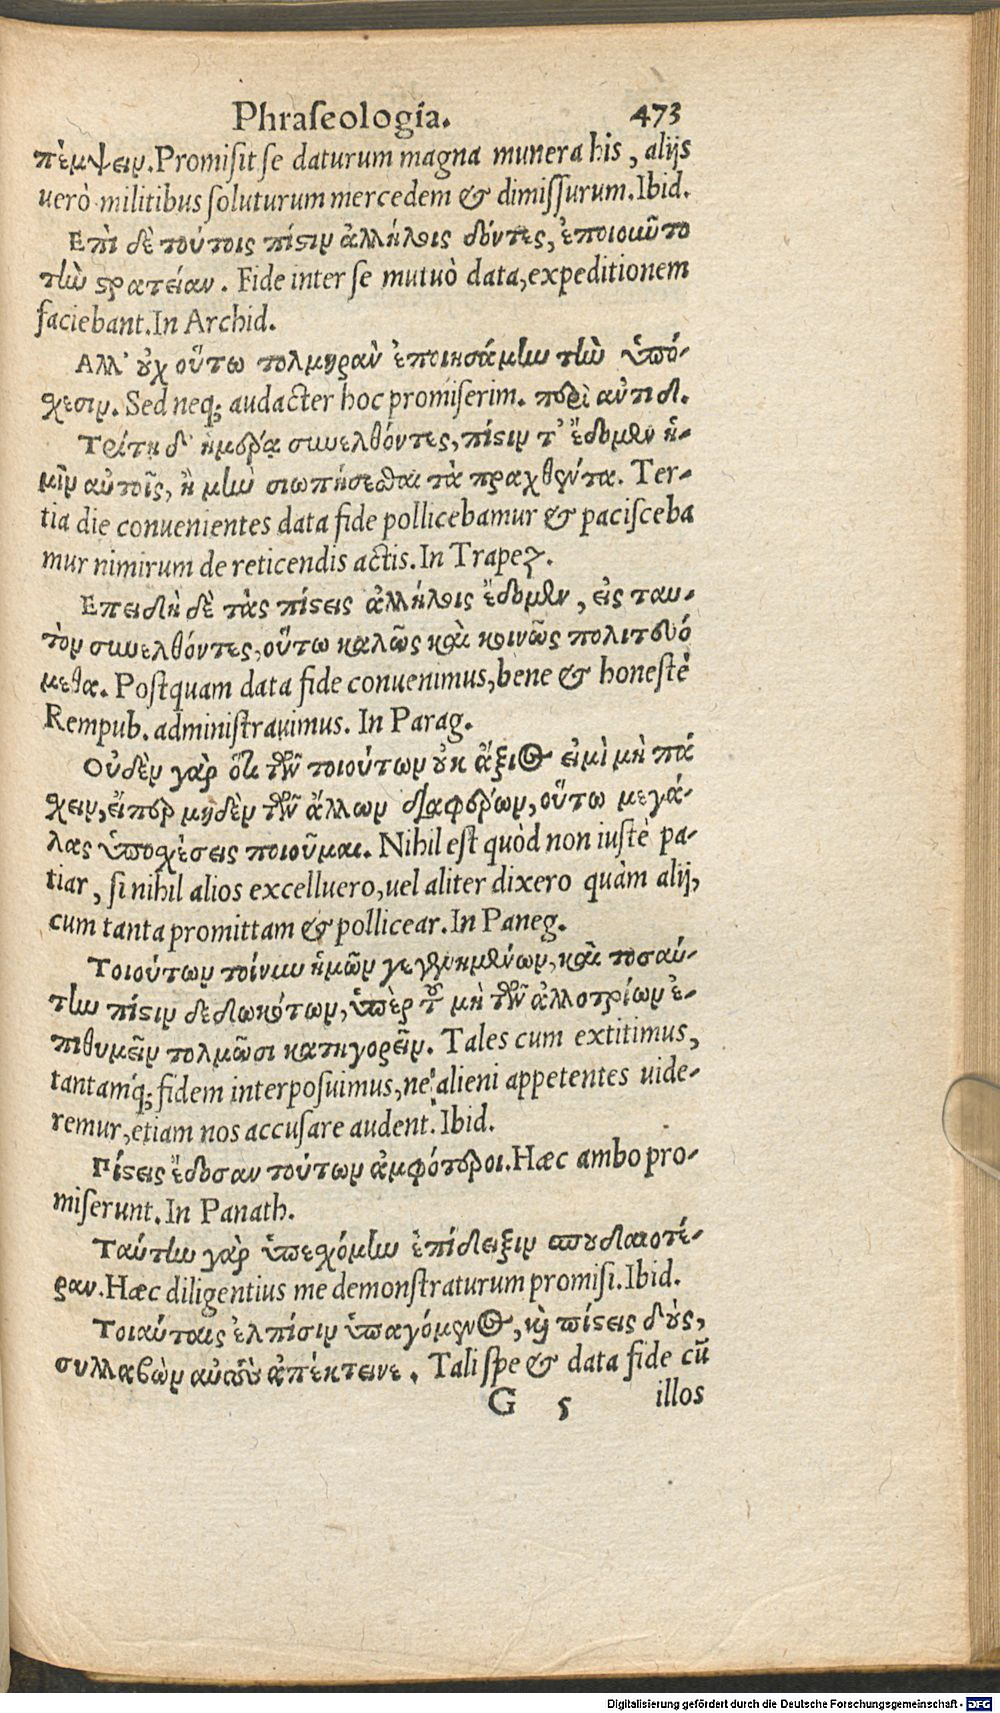 Phraſeologia. 473
πέμψειν. Promiſit ſe daturum magna munera his, alijs
uerò militibus ſoluturum mercedem & dimiſſurum. Ibid.
Επὶ δὲ τούτοις πίϛιν ἀλλήλοις δόντες, ἐποιοῦντο
τὴν ϛρατείαν. Fide inter ſe mutuò data, expeditionem
faciebant. In Archid.
Αλλ' οὐχ οὕτω τολμηρὰν ἐποιησάμην τὴν ὑπό-
χεσιν. Sed neq; audacter hoc promiſerim. περὶ αὐτιδ.
Τρίτῃ δ' ἡμέρᾳ συνελθόντες, πίϛιν τ' ἔδομεν ἡ-
μῖν αὐτοῖς, ἦ μὴν σιωπήσεσθαι τὰ πραχθέντα. Ter-
tia die conuenientes data fide pollicebamur & paciſceba
mur nimirum de reticendis actis. In Trapez.
Επειδὴ δὲ τὰς πίϛεις ἀλλήλοις ἔδομεν, εἰς ταυ-
τὸν συνελθόντες, οὕτω καλῶς καὶ κοινῶς πολιτευό
μεθα. Poſtquam data fide conuenimus, bene & honeſtè
Rempub. adminiſtrauimus. In Parag.
Οὐδὲν γὰρ ὅτι τῶν τοιούτων οὐκ ἄξιος εἰμὶ μὴ πά
χειν, εἴπερ μηδὲν τῶν ἄλλων διαφέρων, οὕτω μεγά-
λας ὑποχέσεις ποιοῦμαι. Nihil eſt quòd non iuſtè pa-
tiar, ſi nihil alios excelluero, uel aliter dixero quàm alij,
cum tanta promittam & pollicear. In Paneg.
Τοιούτων τοίνυν ἡμῶν γεγενημένων, καὶ τοσαύ-
την πίϛιν δεδωκότων, ὑπὲρ τοῦ μὴ τῶν ἀλλοτρίων ἐ-
πιθυμεῖν τολμῶσι κατηγορεῖν. Tales cum extitimus,
tantamq́; fidem interpoſuimus, ne alieni appetentes uide-
remur, etiam nos accuſare audent. Ibid.
Πίϛεις ἔδοσαν τούτων ἀμφότεροι. Hæc ambo pro-
miſerunt. In Panath.
Ταύτην γὰρ ὑπεχόμην ἐπίδειξιν σπουδαιοτέ-
ραν. Hæc diligentius me demonſtraturum promiſi. Ibid.
Τοιαύταις ἐλπίσιν ὑπαγόμενος, καὶ πίϛεις δοὺς,
συλλαβὼν αὐτὸν ἀπέκτεινε. Tali ſpe & data fide cũ
G 5 illos
Digitalisierung gefördert durch die Deutsche Forschungsgemeinschaft - DFG